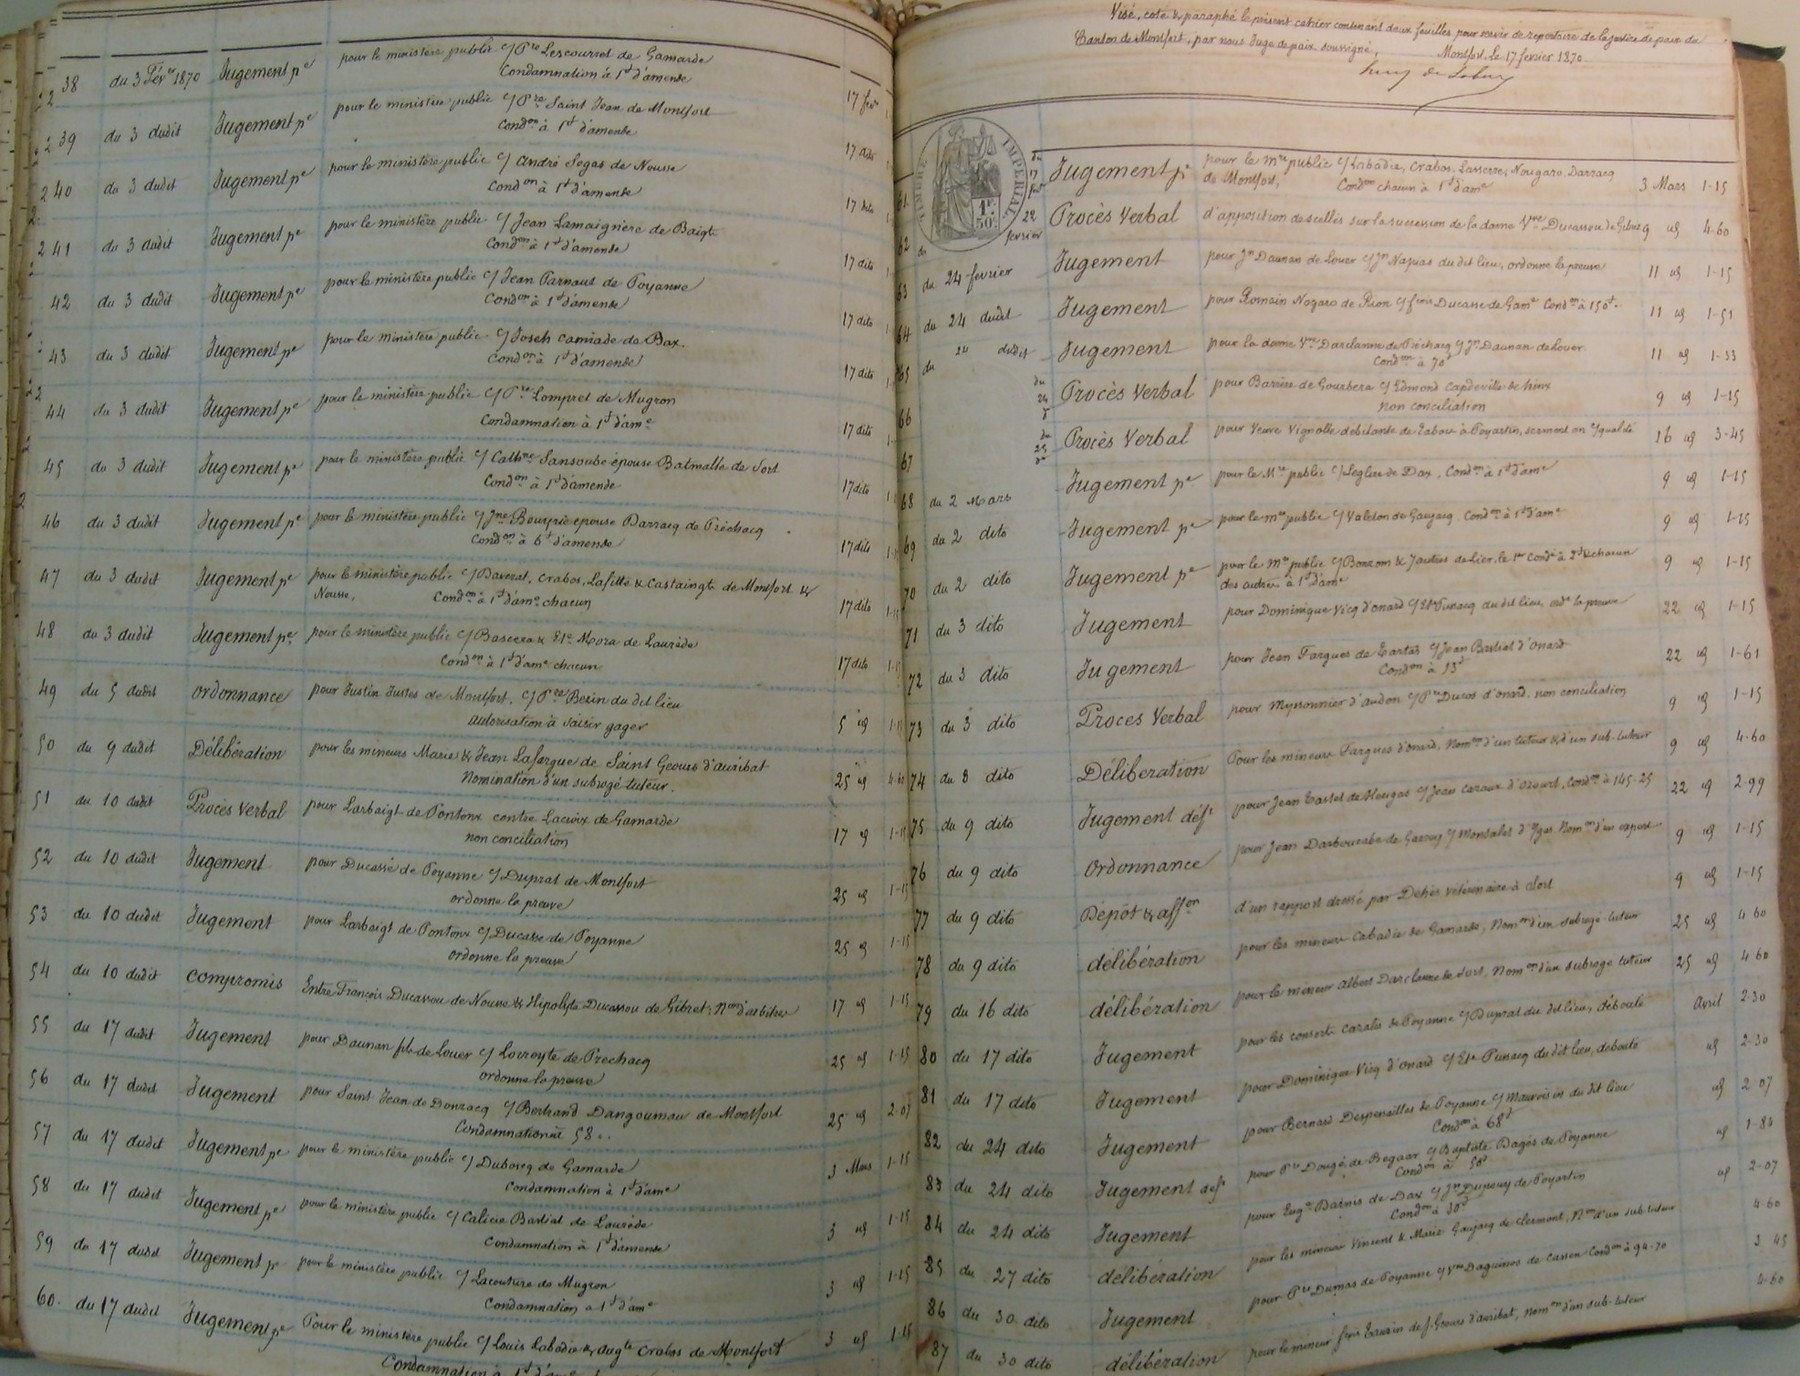 38 du 3 Févr 1870 Jugement pe pour le ministère public c/ Pre Lescourret de Gamarde 17 fevr
Condamnation à 1f d'amende
39 du 3 dudit Jugement pe pour le ministère public c/ Pre Saint Jean de Montfort 17 dito
Condon à 1f d'amende
40 du 3 dudit Jugement pe pour le ministère public c/ André Segas de Nousse 17 dito
Condon à 1f d'amende
41 du 3 dudit Jugement pe pour le ministère public c/ Jean Lamaignère de Baigts 17 dito
Condon à 1f d'amende
42 du 3 dudit Jugement pe pour le ministère public c/ Jean Parnaut de Poyanne 17 dito
Condon à 1f d'amende
43 du 3 dudit Jugement pe pour le ministère public c/ Joseh Camiade de Dax. 17 dito
Condon à 1f d'amende
44 du 3 dudit Jugement pe pour le ministère public c/ Pre Lompret de Mugron 17 dito
Condamnation à 1f d'ame
45 du 3 dudit Jugement pe pour le ministère public c/ Cathne Sansoube épouse Batmalle de Sort 17 dito
Condon à 1f d'amende
46 du 3 dudit Jugement pe pour le ministère public c/ Jne épouse Darracq de Préchacq 17 dito
Condon à 6f d'amende
47 du 3 dudit Jugement pe pour le ministère public c/ Daverat, Crabos, Lafitte & Castaingts de Montfort &
Nousse. Condon à 1f d'ame chacun 17 dito
48 du 3 dudit Jugement pe pour le ministère public c/ & Mora de Laurède 17 dito
Condon à 1f d'ame chacun
49 du 5 dudit Ordonnance pour Justin Justes de Montfort, c/ Pre Betin du dit lieu
autorisation à saisir gager 5 1-15
50 du 9 dudit Délibération pour les mineurs Marie & Jean Lafargue de Saint Geours d'auribat
Nomination d'un subrogé tuteur. 25 4-60
51 du 10 dudit Procès Verbal pour Larbaigt de Pontonx contre Lacroix de Gamarde
non conciliation 17 1-15
52 du 10 dudit Jugement pour Ducasse de Poyanne c/ Duprat de Montfort
ordonne la preuve 25 1-15
53 du 10 dudit Jugement pour Larbaigt de Pontonx c/ Ducasse de Poyanne
ordonne la preuve 25 1-15
54 du 10 dudit Compromis Entre François Ducassou de Nousse & Hipolyte Ducassou de Gibret; d'arbitres 17 1-15
55 du 17 dudit Jugement pour Daunan fils de Louer c/ Lorreyte de Prechacq
ordonne la preuve 25 1-15
56 du 17 dudit Jugement pour Saint Jean de Donzacq c/ Bertrand Dangoumau de Montfort
Condamnation à 58 25 2-07
57 du 17 dudit Jugement pe pour le ministère public c/ Duboscq de Gamarde
Condamnation à 1f d'ame 3 Mars 1-15
58 du 17 dudit Jugement pe pour le ministère public c/ Calicie Bastiat de Laurède
Condamnation à 1f d'amende 3 1-15
59 du 17 dudit Jugement pe pour le ministère public c/ Lacouture de Mugron
Condamnation à 1f d'ame 3 1-15
60. du 17 dudit Jugement pe Pour le ministère public c/ Louis Labadie & Augte Crabos de Montfort 3 1-15
Condamnation à 1f
Visé, coté & paraphé le présent cahier contenant deux feuilles, pour servir de repertoire de la justice de paix du
Canton de Montfort, par nous Juge de paix soussigné, Montfort, le 17 fevrier 1870
TIMBRE IMPERIAL
1F. 50c.
61 du 17 fevr Jugement pe pour le mre public c/ Labadie, Crabos, Lasserre, Nougaro, Darracq
de Montfort, Condon chacun à 1f d'ame 3 Mars 1-15
62 du 22 fevrier Procès Verbal d'apposition de scellés sur la succession de la dame Vve Ducassou de Gibret 9 4-60
63 du 24 fevrier Jugement pour Jn Daunan de Louer c/ Jn Napias du dit lieu, ordonne la preuve 11 1-15
64 du 24 dudit Jugement pour Romain Nogaro de Rion c/ frois Ducasse de Game Condon à 150f. 11 1-51
65 du 24 dudit Jugement pour la dame Vve Darclanne de Préchacq c/ Jn Daunan de Louer.
Condon à 70f 11 1-33
66 du 24 do Procès Verbal pour Barrère de Gourbera c/ Edmond Capdeville de hinx
non conciliation 9 1-15
67 du 25 do Procès Verbal pour Veuve Vignolle débitante de tabac à Poyartin, serment en 16 3-45
68 du 2 Mars Jugement pe pour le Mre public c/ Leglise de Dax, Condon à 1f d'ame 9 1-15
69 du 2 dito Jugement pe pour le mre public c/ Valeton de Gaujacq Condon à 1f d'ame 9 1-15
70 du 2 dito Jugement pe pour le mre public c/ & Jautres de Lier, le 1er Condé à 2f & chacun
des autres à 1f d'ame 9 1-15
71 du 3 dito Jugement pour Dominique Vicq d'onard c/ Ete Punacq du dit lieu, orde la preuve 22 1-15
72 du 3 dito Jugement pour Jean Fargues de Tartas c/ Jean Bastiat d'onard
Condon à 13f 22 1-61
73 du 3 dito Proces Verbal pour Meysonnier d'audon c/ Pre Ducos d'onard, non conciliation 9 1-15
74 du 8 dito Déliberation Pour les mineurs Fargues d'onard, Nomon d'un tuteur & d'un sub-tuteur 9 4-60
75 du 9 dito Jugement déft pour Jean Castel de Heugas c/ Jean Caraux d'ozourt, Condon à 145-25 22 2-99
76 du 9 dito Ordonnance pour Jean Darboucabe de Garrey c/ Montalet d' Nomon d'un expert 9 1-15
77 du 9 dito Dépôt & affon d'un rapport dressé par Dehez vétérinaire à Sort 9 1-15
78 du 9 dito délibération pour les mineurs Cabadie de Gamarde, Nomon d'un subrogé-tuteur 25 4 60
79 du 16 dito délibération pour le mineur Albert Darclanne de Sort, Nomon d'un subrogé tuteur 25 4 60
80 du 17 dito Jugement pour les consorts Carales de Poyanne c/ Duprat du dit lieu, débouté Avril 2-30
81 du 17 dito Jugement pour Dominique Vicq d'onard c/ Ete Punacq du dit lieu, débouté 2-30
82 du 24 dito Jugement pour Bernard Despenailles de Poyanne c/ Mauvoisin du dit lieu
Condon à 68f 2-07
83 du 24 dito Jugement déft pour Pre Dougé, de Begaar c/ Baptiste Dagès de Poyanne
Condon à 50f 1-84
84 du 24 dito Jugement pour Eugne Darnis de Dax c/ Jn Dupouy de Poyartin
Condon à 30f 2-07
85 du 27 dito délibération pour les mineurs Vincent & Marie Gaujacq de Clermont, Non d'un sub-tuteur 4 60
86 du 30 dito Jugement pour Pre Dumas de Poyanne c/ Vve Daguinos de Cassen Condon à 94-70 2 45
87 du 30 dito délibération pour le mineur frois Tauzin de St Geours d'auribat, nomon d'un sub-tuteur 4-60